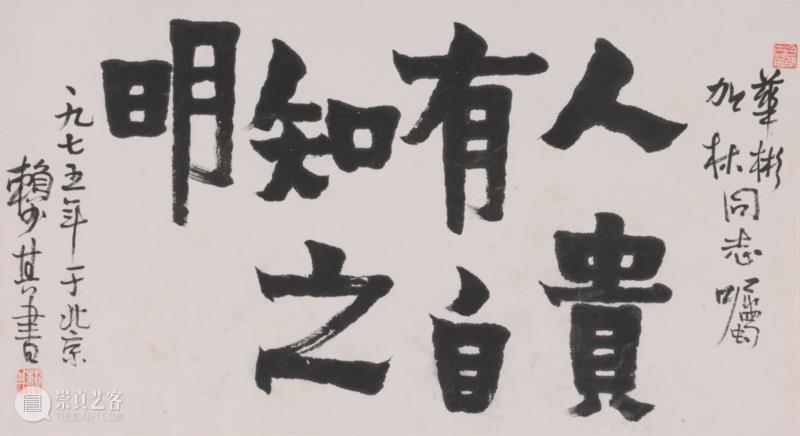 華彬
加林同志囑
人貴
有自
知之
明
一九七五年于北京
賴少其書
崇真艺客
TRUEART.COM